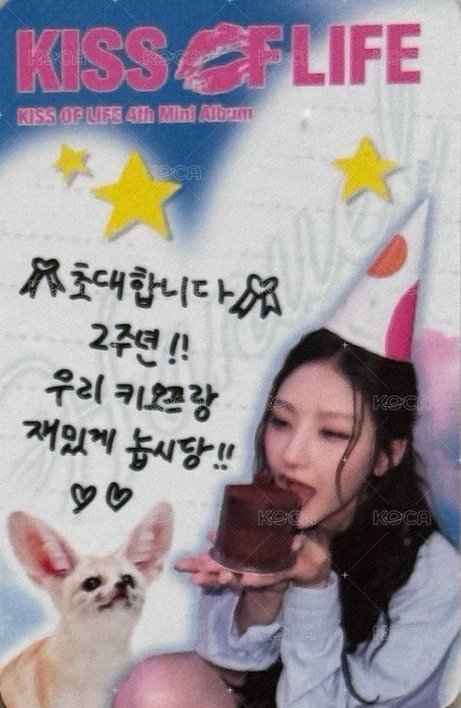 KISS OF LIFE
KISS OF LIFE 4th Mini Album
초대합니다
2주년!!
우리 키오프랑
재밌게 놉시당!!
KOCA
KOCA
KOCA
KOCA
KOCA
KOCA
KOCA
KOCA
KOCA
KOCA